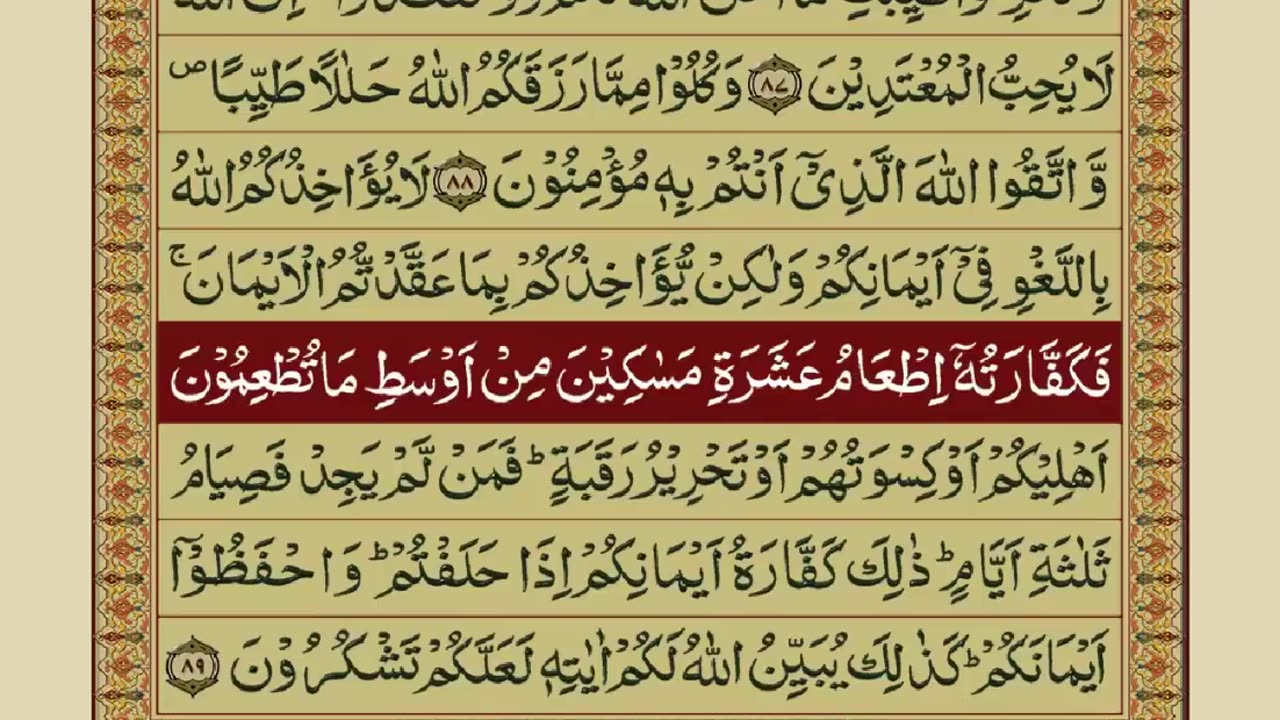 لَا يُحِبُّ الْمُعْتَدِيْنَ ﴿۸۷﴾ وَكُلُوْا مِمَّا رَزَقَكُمُ اللّٰهُ حَلٰلًا طَيِّبًا ۪
وَّ اتَّقُوا اللّٰهَ الَّذِىْٓ اَنْتُمْ بِهٖ مُؤْمِنُوْنَ ﴿۸۸﴾ لَا يُؤَاخِذُكُمُ اللّٰهُ
بِاللَّغْوِ فِىْٓ اَيْمَانِكُمْ وَلٰكِنْ يُّؤَاخِذُكُمْ بِمَا عَقَّدْتُّمُ الْاَيْمَانَ ۚ
فَكَفَّارَتُهٗٓ اِطْعَامُ عَشَرَةِ مَسٰكِيْنَ مِنْ اَوْسَطِ مَا تُطْعِمُوْنَ
اَهْلِيْكُمْ اَوْ كِسْوَتُهُمْ اَوْ تَحْرِيْرُ رَقَبَةٍ ؕ فَمَنْ لَّمْ يَجِدْ فَصِيَامُ
ثَلٰثَةِ اَيَّامٍ ؕ ذٰلِكَ كَفَّارَةُ اَيْمَانِكُمْ اِذَا حَلَفْتُمْ ؕ وَ احْفَظُوْٓا
اَيْمَانَكُمْ ؕ كَذٰلِكَ يُبَيِّنُ اللّٰهُ لَكُمْ اٰيٰتِهٖ لَعَلَّكُمْ تَشْكُرُوْنَ ﴿۸۹﴾